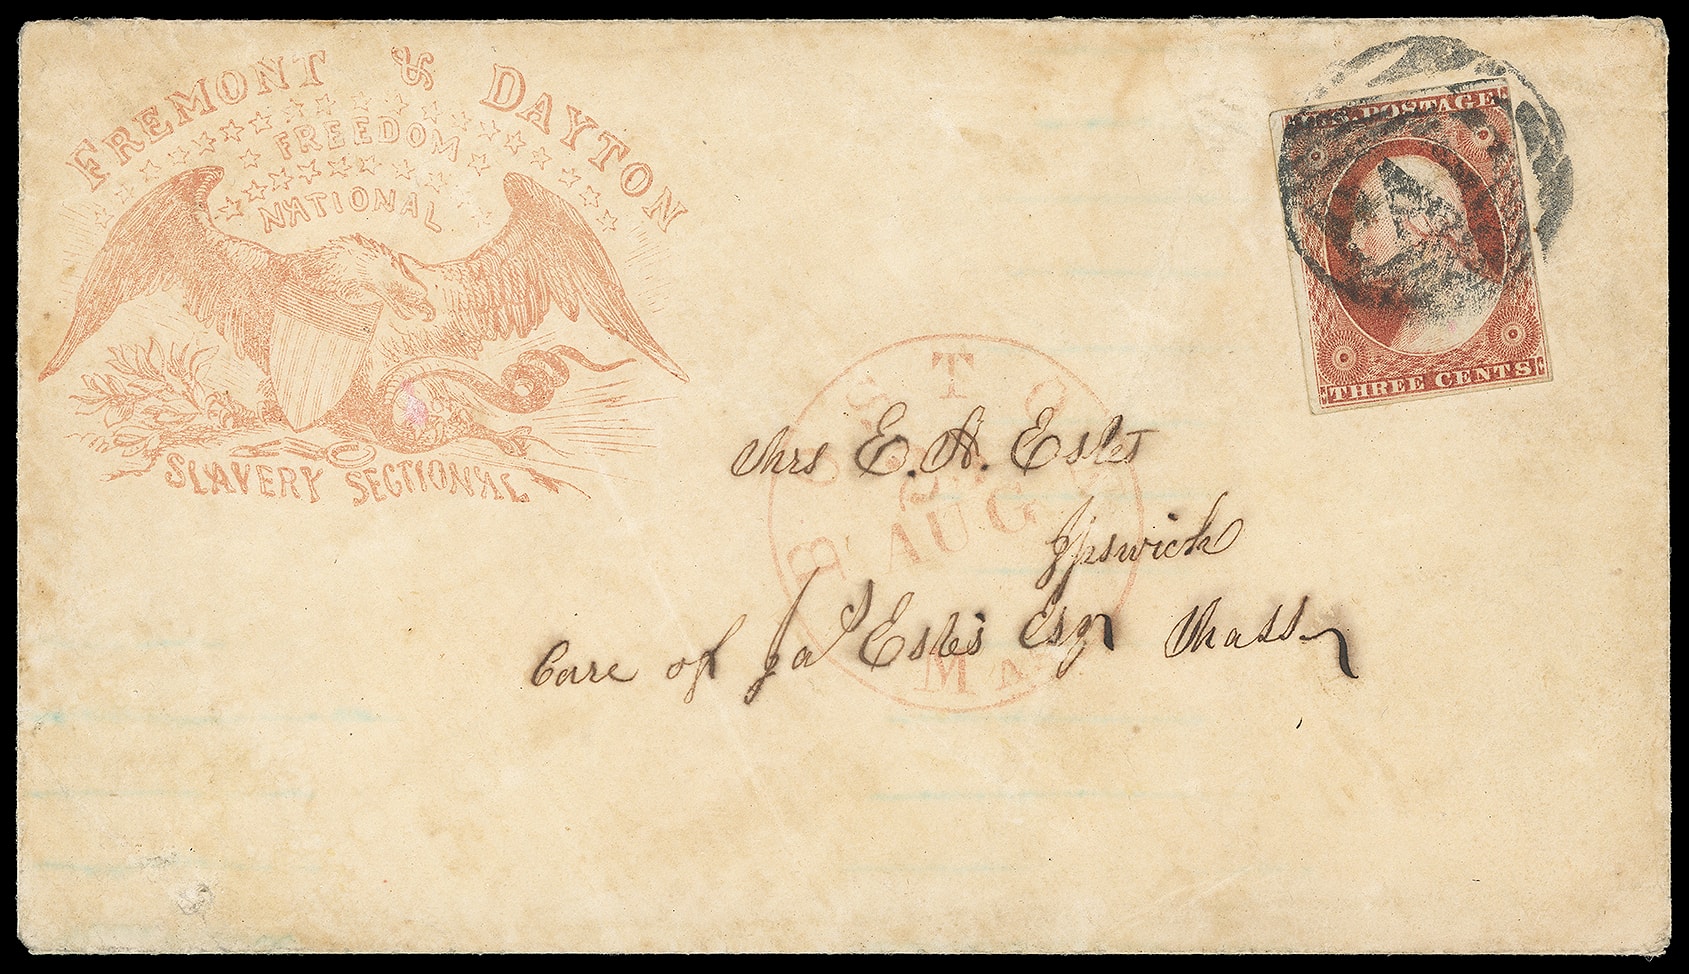 FREMONT & DAYTON
FREEDOM
NATIONAL
SLAVERY SECTIONAL
U.S. POSTAGE
THREE CENTS
BOSTON
AUG
MAS
Mrs E. A. Estes
Ipswich
Care of Jas Estes Esqr Mass